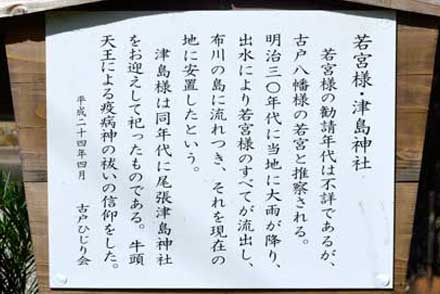 若宮様・津島神社
若宮様の勧請年代は不詳であるが、
古戸八幡様の若宮と推察される。
明治三〇年代に当地に大雨が降り、
出水により若宮様のすべてが流出し、
布川の島に流れつき、それを現在の
地に安置したという。
津島様は同年代に尾張津島神社
をお迎えして祀ったものである。牛頭
天王による疫病神の祓いの信仰をした。
平成二十四年四月 古戸ひじり会